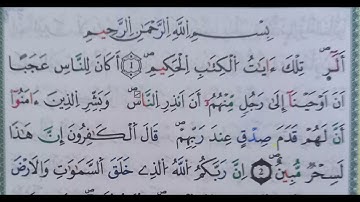 بِسْمِ اللَّهِ الرَّحْمَٰنِ الرَّحِيمِ
أَلَٓرۖ تِلْكَ ءَايَٰتُ الْكِتَٰبِ الْحَكِيمِۖ 1 أَكَانَ لِلنَّاسِ عَجَبًا
اَنَ اَوْحَيْنَآ إِلَىٰ رَجُلٍ مِّنْهُمُۥٓ أَنَ اَنذِرِ النَّاسَۖ وَبَشِّرِ الذِينَ ءَامَنُوٓا
أَنَّ لَهُمْ قَدَمَ صِدْقٍ عِندَ رَبِّهِمْۖ قَالَ الْكَٰفِرُونَ إِنَّ هَٰذَا
لَسِحْرٌ مُّبِينٌۖ 2 إِنَّ رَبَّكُمُ اللَّهُ الذِے خَلَقَ السَّمَٰوَٰتِ وَالْأَرْضَ